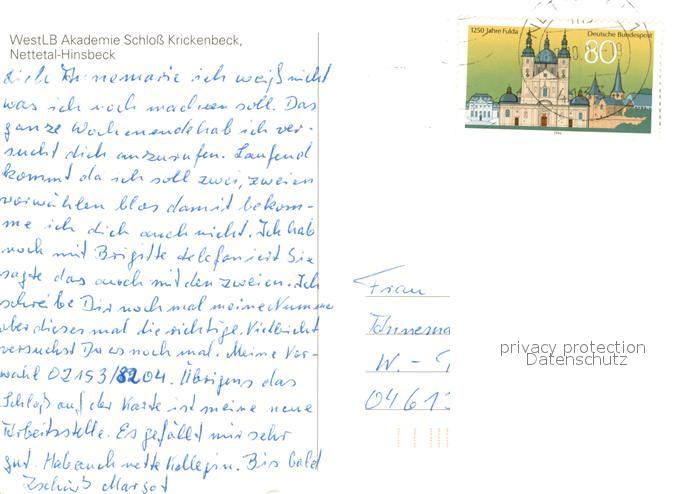 WestLB Akademie Schloß Krickenbeck,
Nettetal-Hinsbeck
Annemarie ich weiß nicht
was ich noch machen soll. Das
ganze Wochenende hab ich ver-
sucht dich anzurufen. Laufend
kommt da ich soll zwei, zweien
vorwählen blos damit bekom-
me ich dich auch nicht. Ich hab
noch mit Brigitte telefoniert Sie
sagte das auch mit den zweien. Ich
schreibe Dir noch mal meine Nummer
aber dieses mal die richtige. Vielleicht
versuchst Du es noch mal. Meine Vor-
wahl 02153/8204. Übrigens das
Schloß auf der Karte ist meine neue
Arbeitsstelle. Es gefällt mir sehr
gut. Hab auch nette Kollegin. Bis bald
Tschüß Margot
1250 Jahre Fulda
Deutsche Bundespost
80
1994
Frau
Annema
W. -
0461
privacy protection
Datenschutz